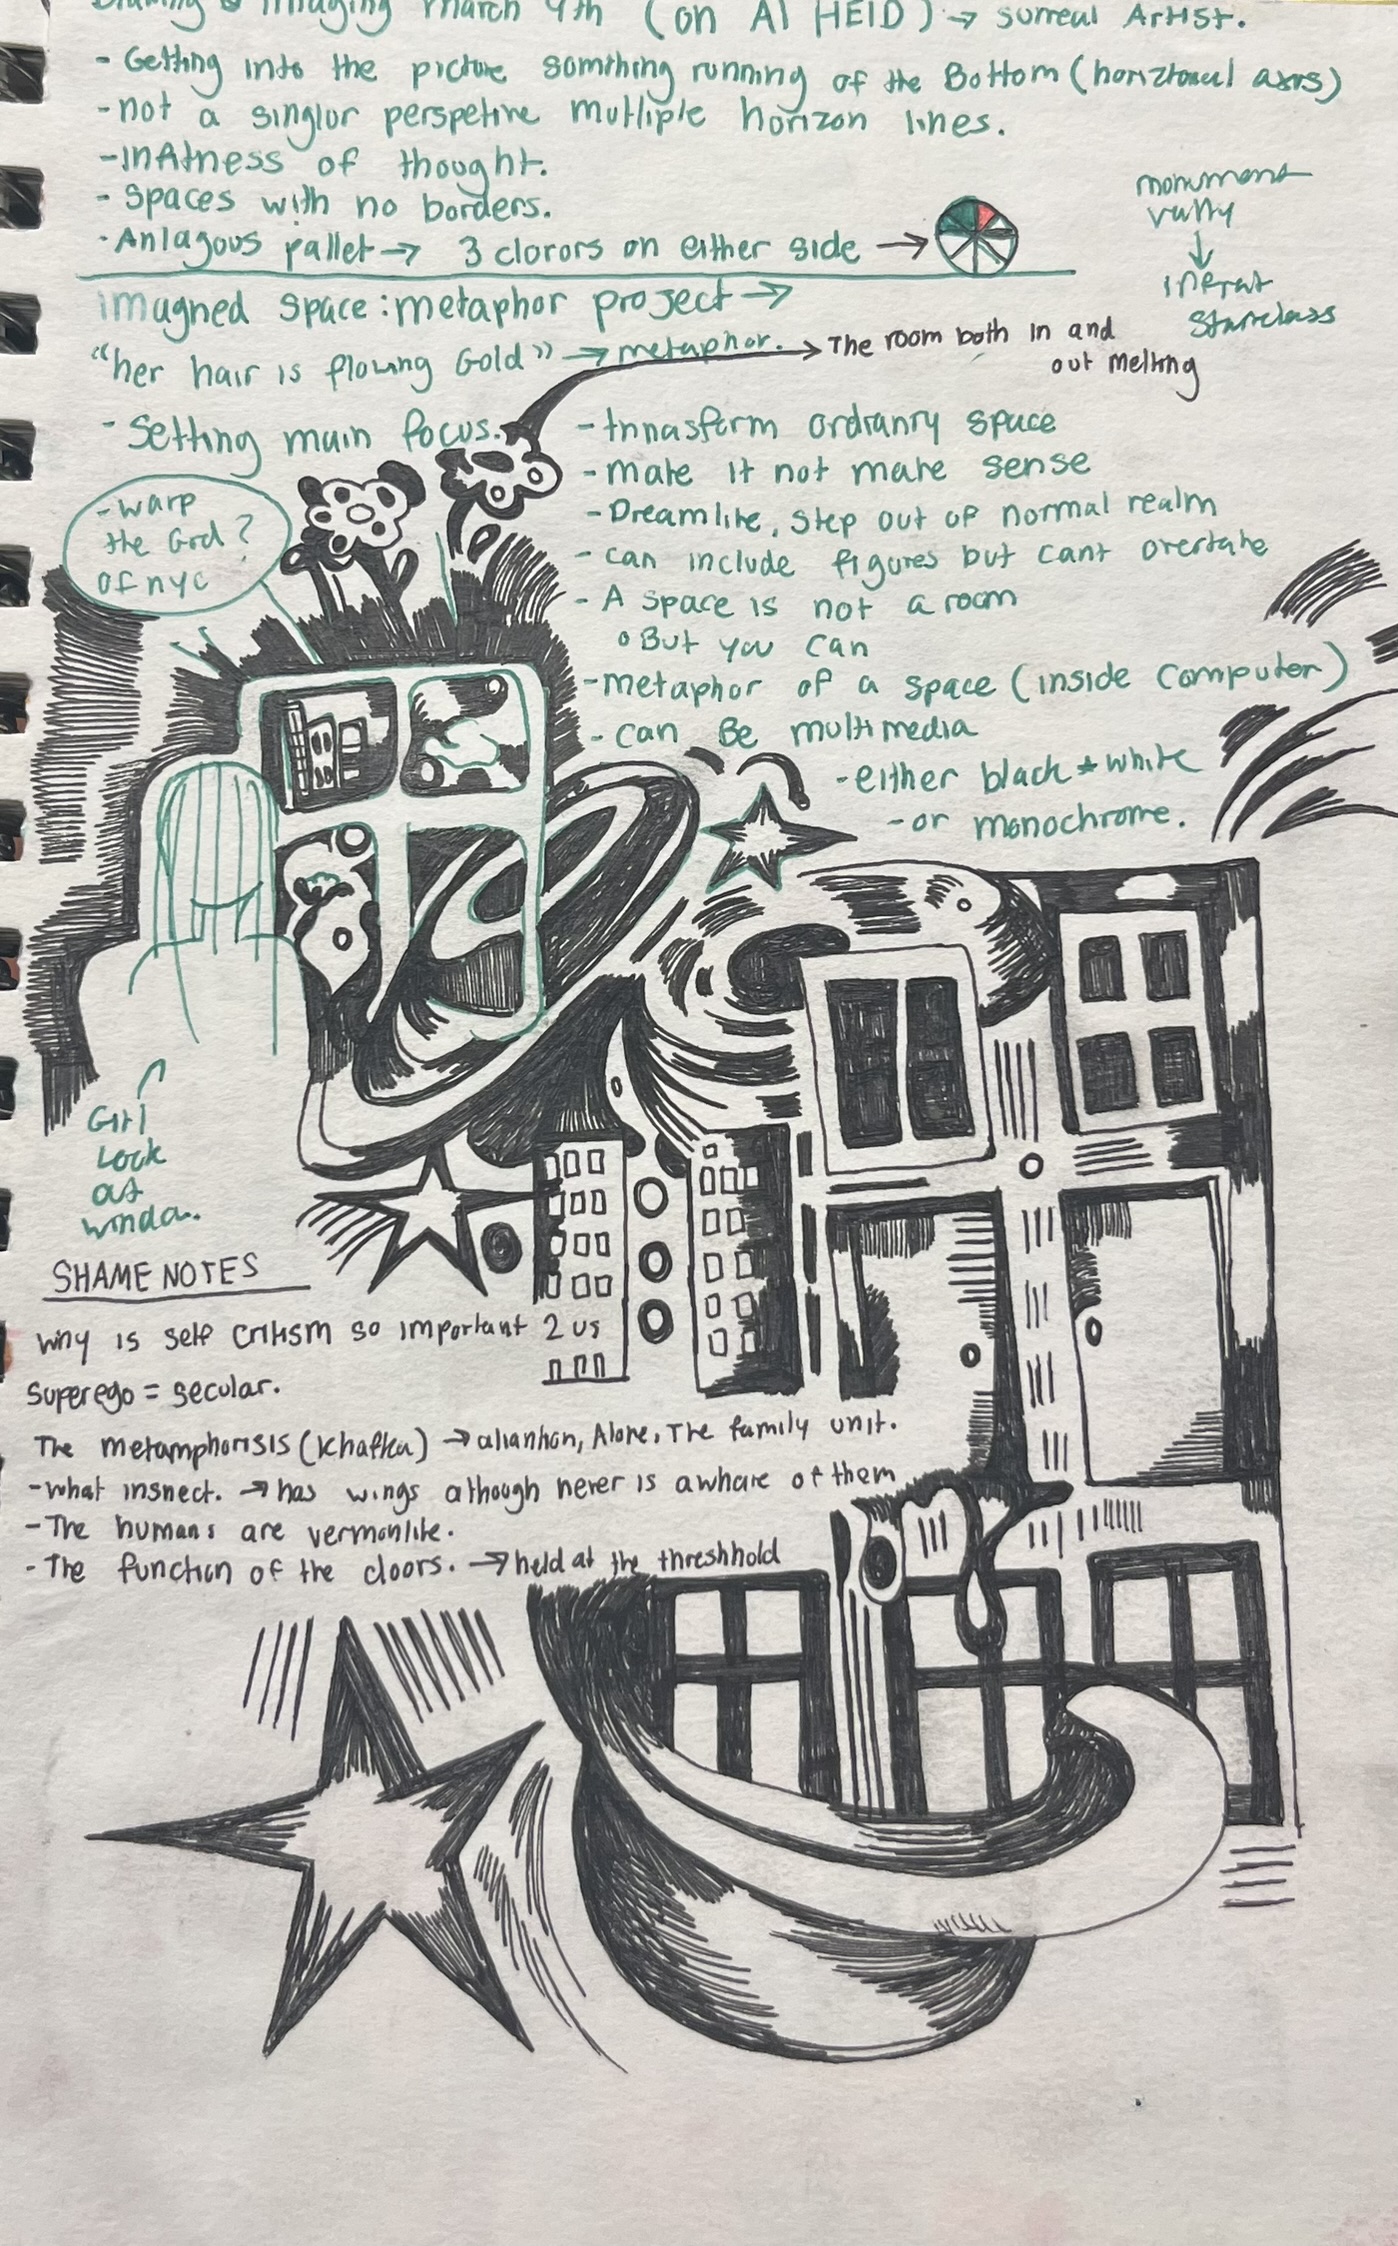 Drawing & Imaging March 9th (on Al HElD) → surreal Artist.
- Getting into the picture somthing running of the Bottom (horiztonal axis)
- not a singlor perspetive multiple horizon lines.
- of thought.
- Spaces with no borders.
- Anlagous pallet → 3 clorors on either side →
monument
vally
↓
imagned space: metaphor project →
"her hair is flowing Gold" → metaphor. → The room both in and
out melting
- Setting main focus.
- warp
the Grd ?
of nyc
- ordranry space
- make it not make sense
- Dreamlike, step out of normal realm
- can include figures but cant overtake
- A space is not a room
• But you can
- metaphor of a space (inside computer)
- can Be multimedia
- either black & white
- or monochrome.
Girl
Look
at
SHAME NOTES
Why is self critism so important 2 us
superego = secular.
The metamphorisis (Khafka) → Alone, The family unit.
- what insnect. → has wings although never is awhare of them
- The humans are vermonlike.
- The function of the doors. → held at the threshhold